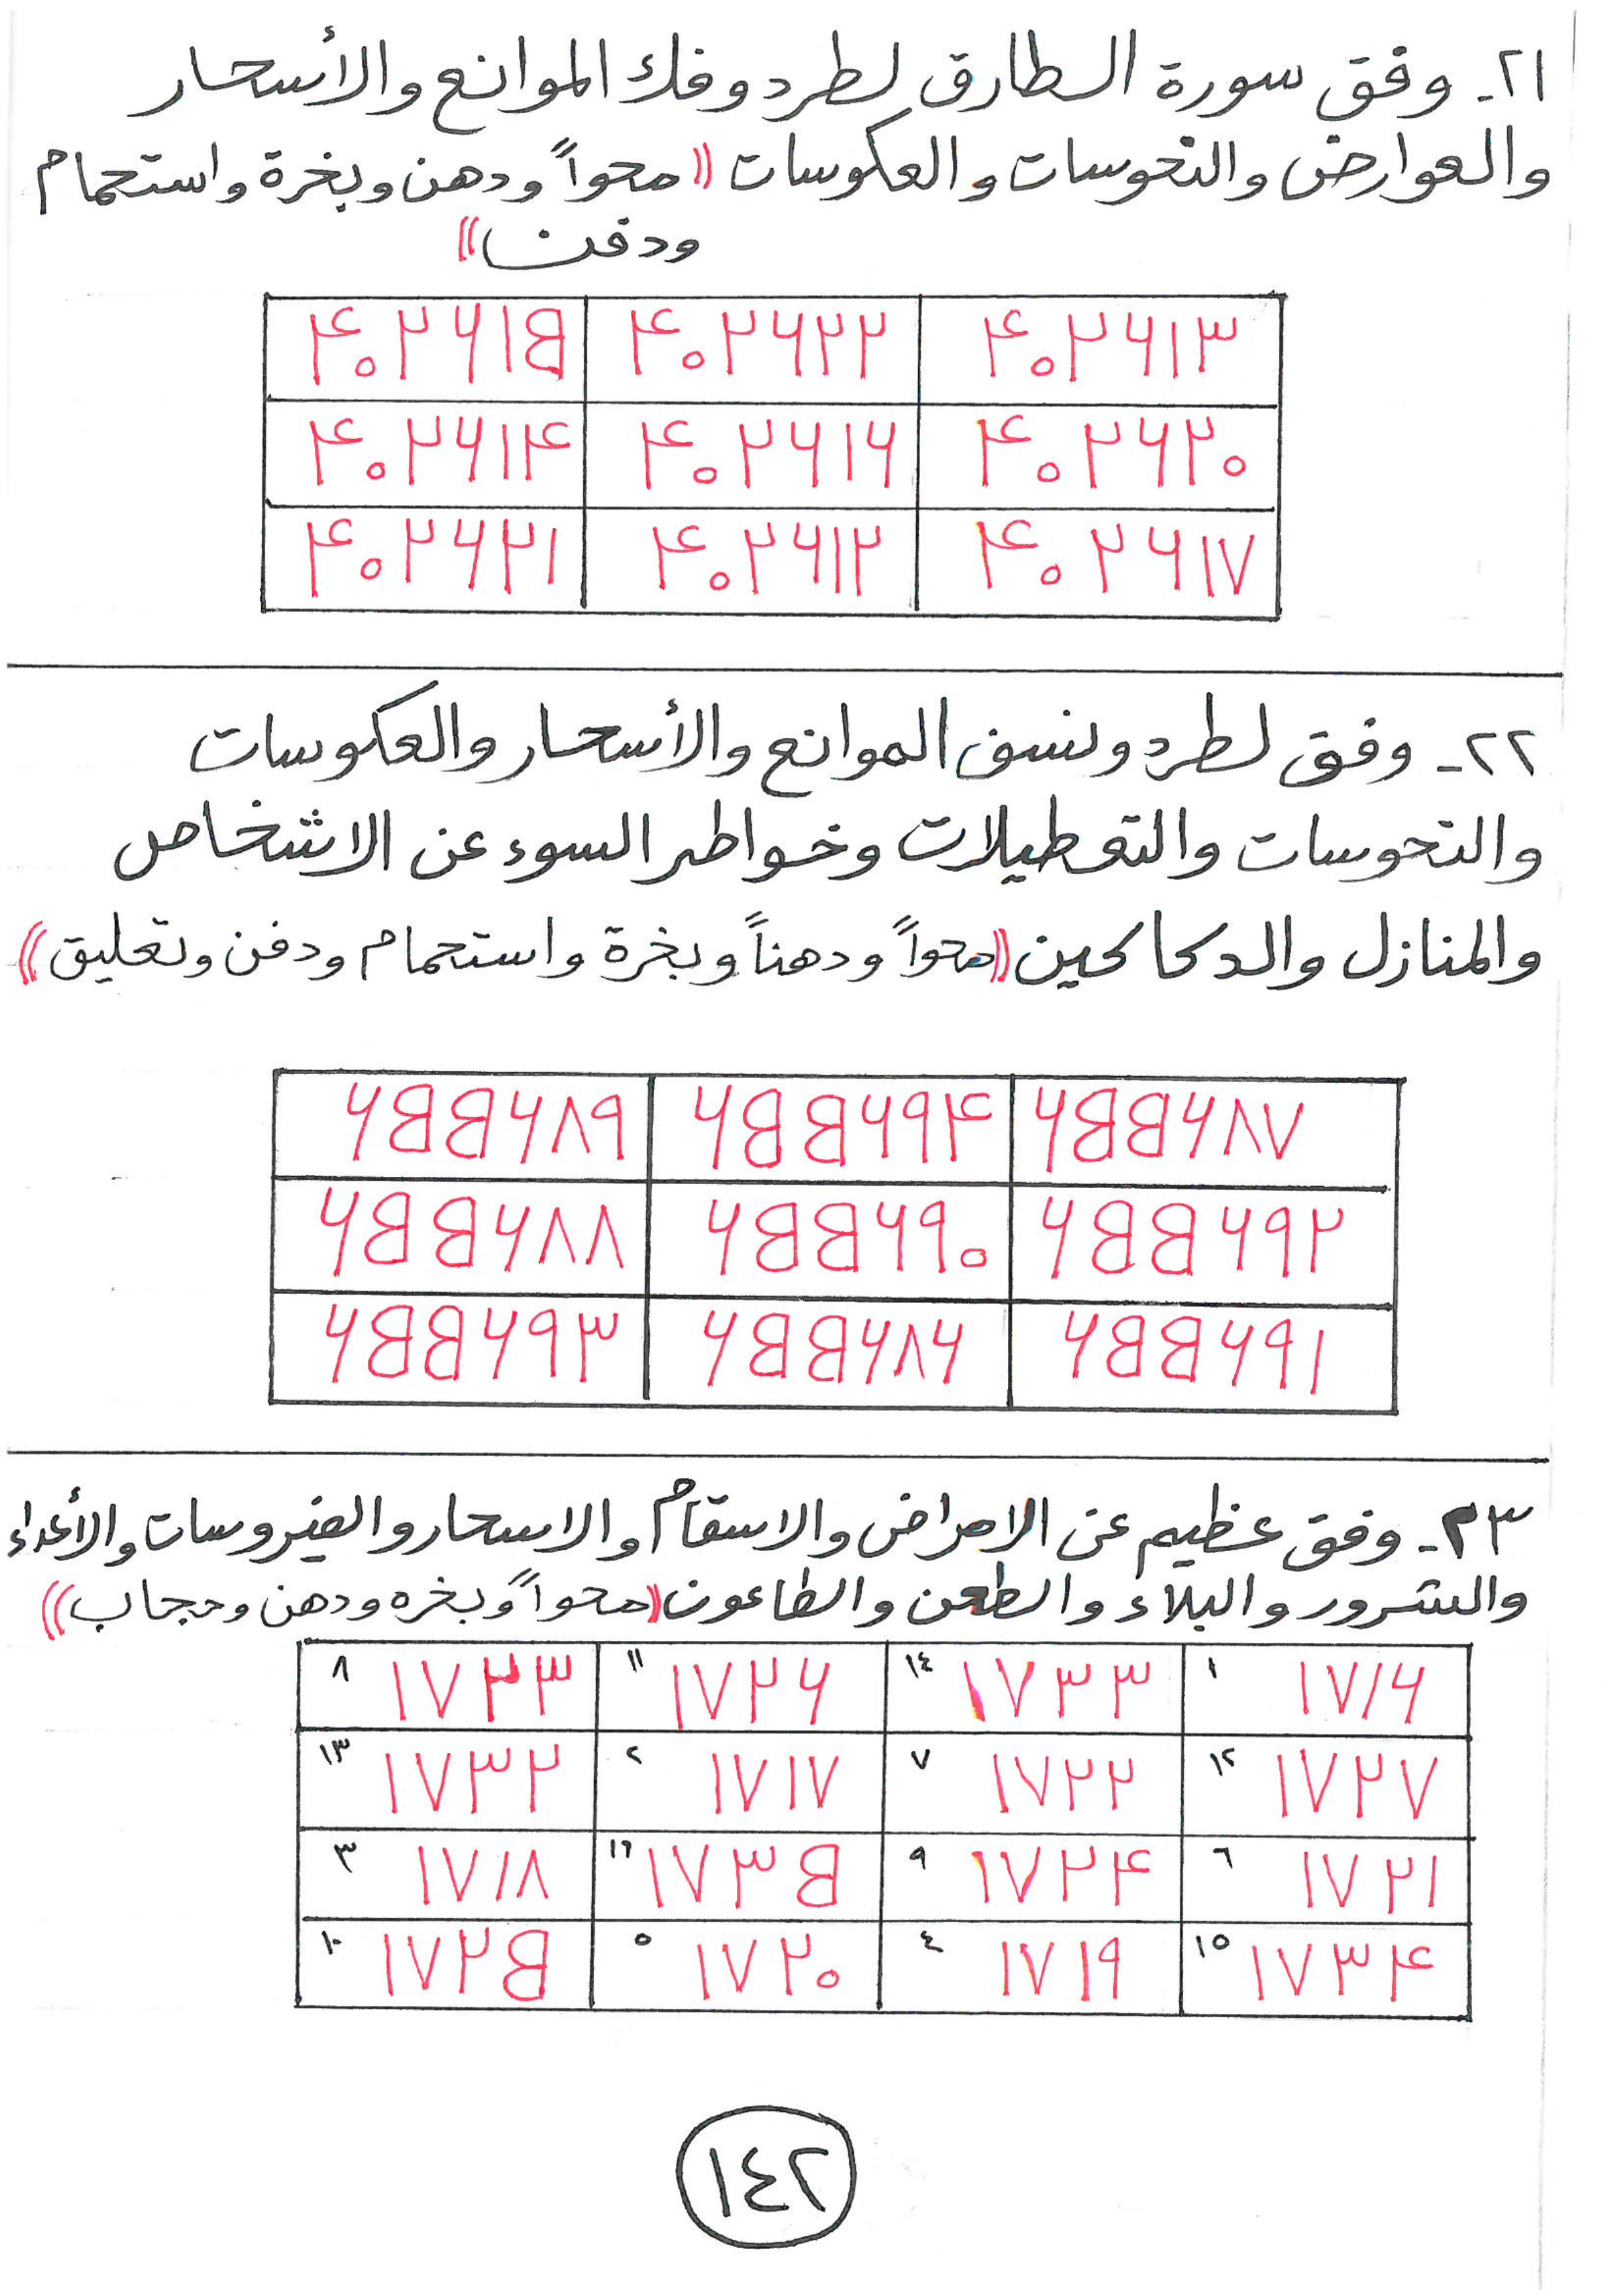 ٢١- وفق سورة الطارق لطرد وفك الموانع والأسحار
والعوارض والنحوسات والعكوسات ((محواً ودهن وبخرة واستحمام
ودفن))
٤٠٢٦١٥ ٤٠٢٦٢٢ ٤٠٢٦١٣
٤٠٢٦١٤ ٤٠٢٦١٦ ٤٠٢٦٢٠
٤٠٢٦٢١ ٤٠٢٦١٢ ٤٠٢٦١٧
٢٢- وفق لطرد ونسف الموانع والأسحار والعكوسات
والنحوسات والتعطيلات وخواطر السوء عن الاشخاص
والمنازل والدكاكين ((محواً ودهناً وبخرة واستحمام ودفن وتعليق))
٦٥٥٦٨٩ ٦٥٥٦٩٤ ٦٥٥٦٨٧
٦٥٥٦٨٨ ٦٥٥٦٩٠ ٦٥٥٦٩٢
٦٥٥٦٩٣ ٦٥٥٦٨٦ ٦٥٥٦٩١
٢٣- وفق عظيم عن الامراض والاسقام والاسحار والفيروسات والأعداء
والشرور والبلاء والطعن والطاعون ((محواً وبخره ودهن وحجاب))
٨ ١٧٢٣ ١١ ١٧٢٦ ١٤ ١٧٣٣ ١ ١٧١٦
١٣ ١٧٣٢ ٢ ١٧١٧ ٧ ١٧٢٢ ١٢ ١٧٢٧
٣ ١٧١٨ ١٦ ١٧٣٥ ٩ ١٧٢٤ ٦ ١٧٢١
١٠ ١٧٢٥ ٥ ١٧٢٠ ٤ ١٧١٩ ١٥ ١٧٣٤
١٤٢